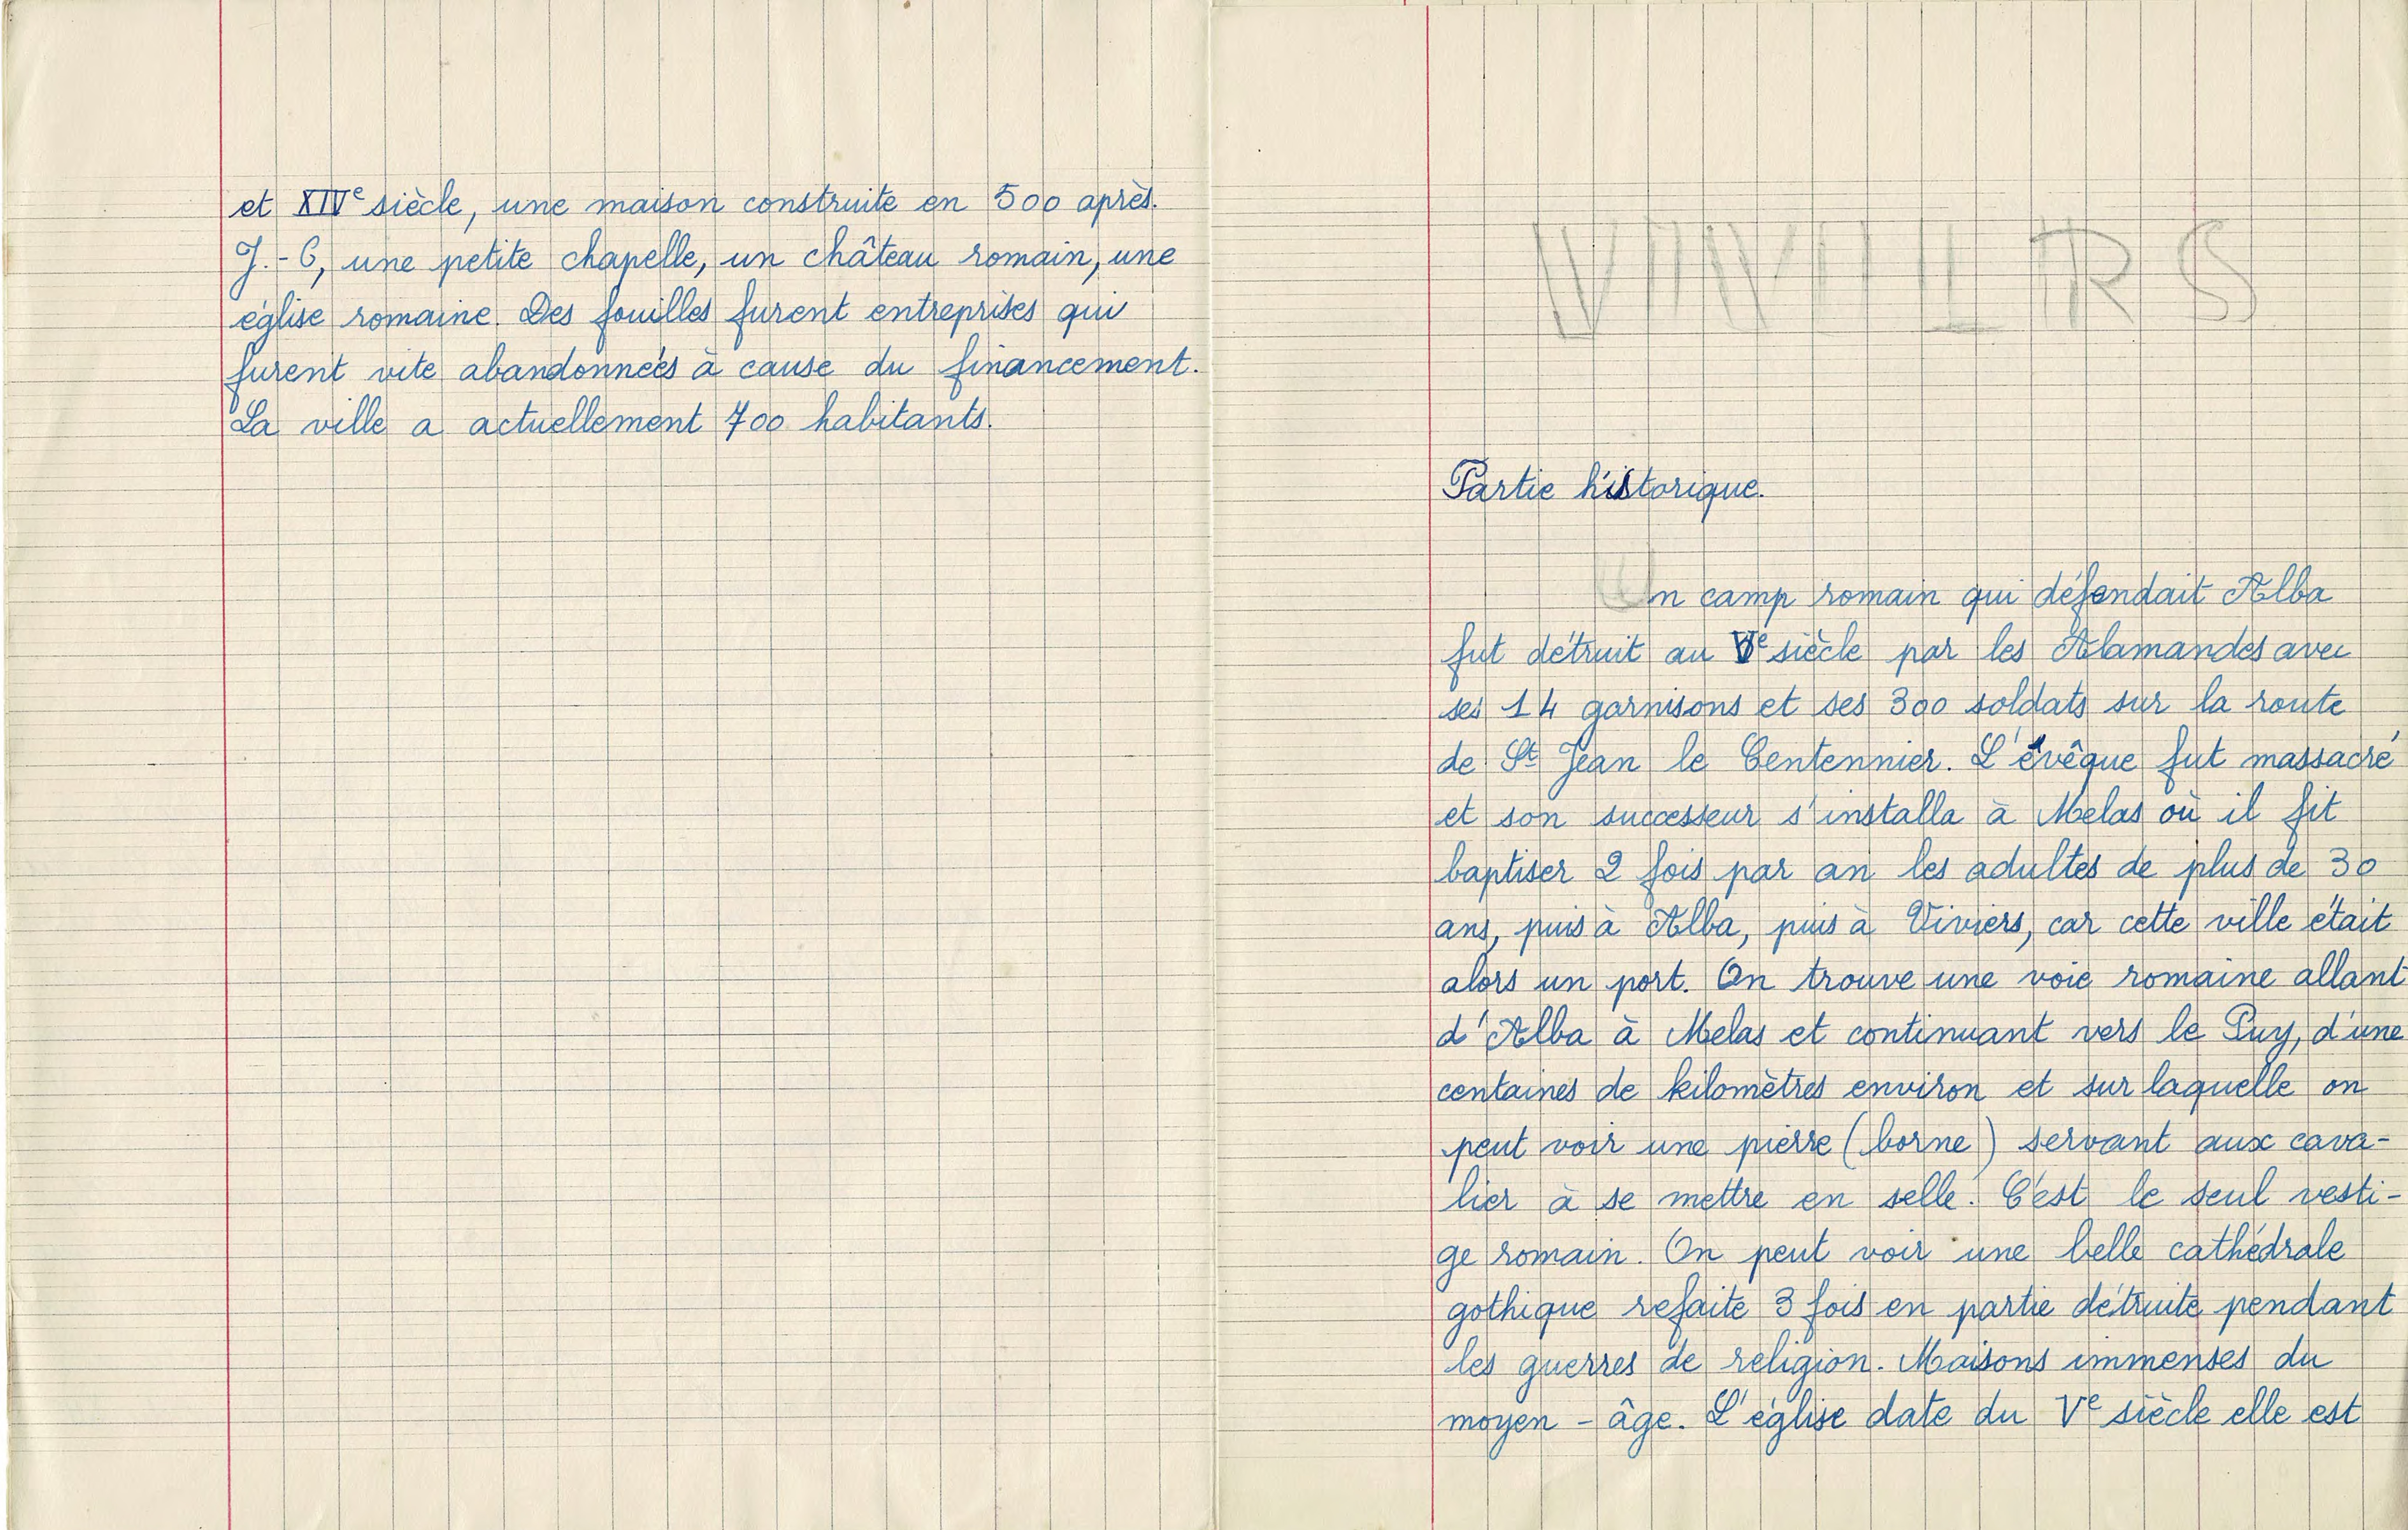 et XIVe siècle, une maison construite en 500 après.
J.-C, une petite chapelle, un château romain, une
église romaine. Des fouilles furent entreprises qui
furent vite abandonnées à cause du financement.
La ville a actuellement 700 habitants.
Partie historique.
Un camp romain qui défendait Alba
fut détruit au Ve siècle par les Alamandes avec
ses 14 garnisons et ses 300 soldats sur la route
de St Jean le Centennier. L'évêque fut massacré
et son successeur s'installa à Melas où il fit
baptiser 2 fois par an les adultes de plus de 30
ans, puis à Alba, puis à Viviers, car cette ville était
alors un port. On trouve une voie romaine allant
d'Alba à Melas et continuant vers le Puy, d'une
centaines de kilomètres environ et sur laquelle on
peut voir une pierre (borne) servant aux cava-
lier à se mettre en selle. C'est le seul vesti-
ge romain. On peut voir une belle cathédrale
gothique refaite 3 fois en partie détruite pendant
les guerres de religion. Maisons immenses du
moyen - âge. L'église date du Ve siècle elle est